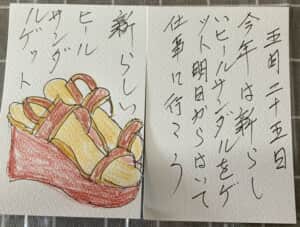 五月二十五日
今年は新らし
いヒールサンダルをゲ
ット明日からはいて
仕事に行こう
新らしい
ヒール
サンダ
ルゲット